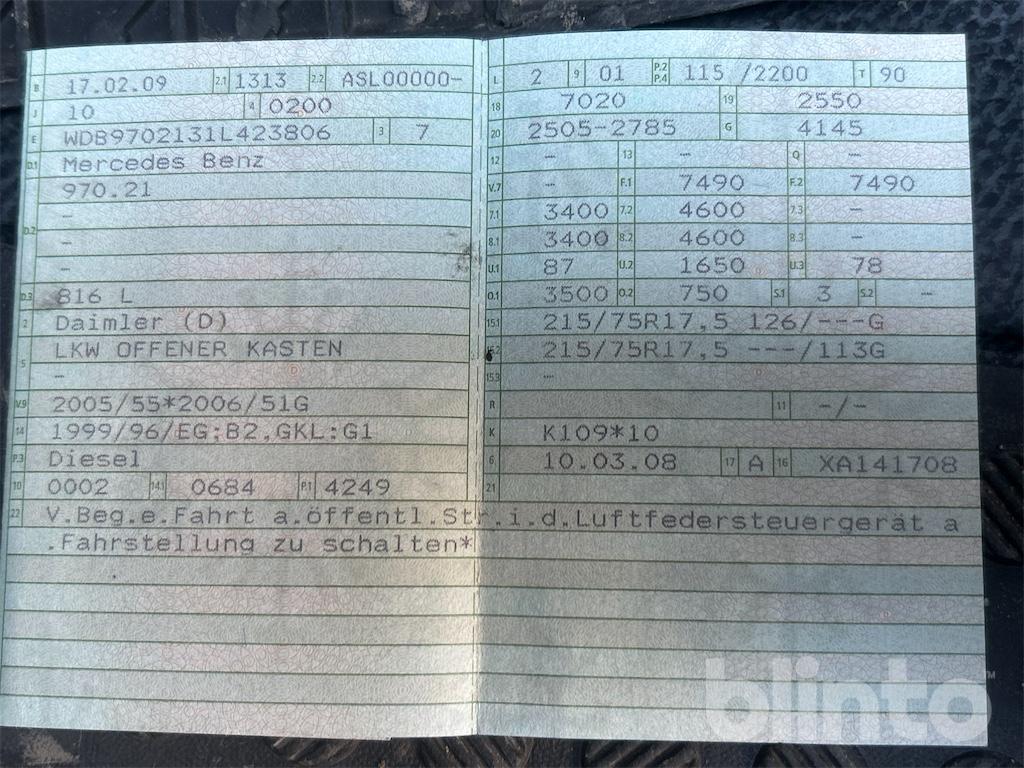 B 17.02.09 2.1 1313 2.2 ASL00000-
J 10 4 0200
E WDB9702131L423806 3 7
D.1 Mercedes Benz
970.21
-
D.2 -
-
D.3 816 L
2 Daimler (D)
5 LKW OFFENER KASTEN
-
V.9 2005/55*2006/51G
14 1999/96/EG;B2,GKL:G1
P.3 Diesel
10 0002 14.1 0684 P.1 4249
L 2 9 01 P.2 P.4 115 /2200 T 90
18 7020 19 2550
20 2505-2785 G 4145
12 -- 13 -- Q --
V.7 -- F.1 7490 F.2 7490
7.1 3400 7.2 4600 7.3 -
8.1 3400 8.2 4600 8.3 -
U.1 87 U.2 1650 U.3 78
O.1 3500 O.2 750 S.1 3 S.2 --
15.1 215/75R17,5 126/---G
15.2 215/75R17,5 ---/113G
15.3 --
R 11 -/-
K K109*10
6 10.03.08 17 A 16 XA141708
21
22 V.Beg.e.Fahrt a.öffentl.Str.i.d.Luftfedersteuergerät a
.Fahrstellung zu schalten*
blinto